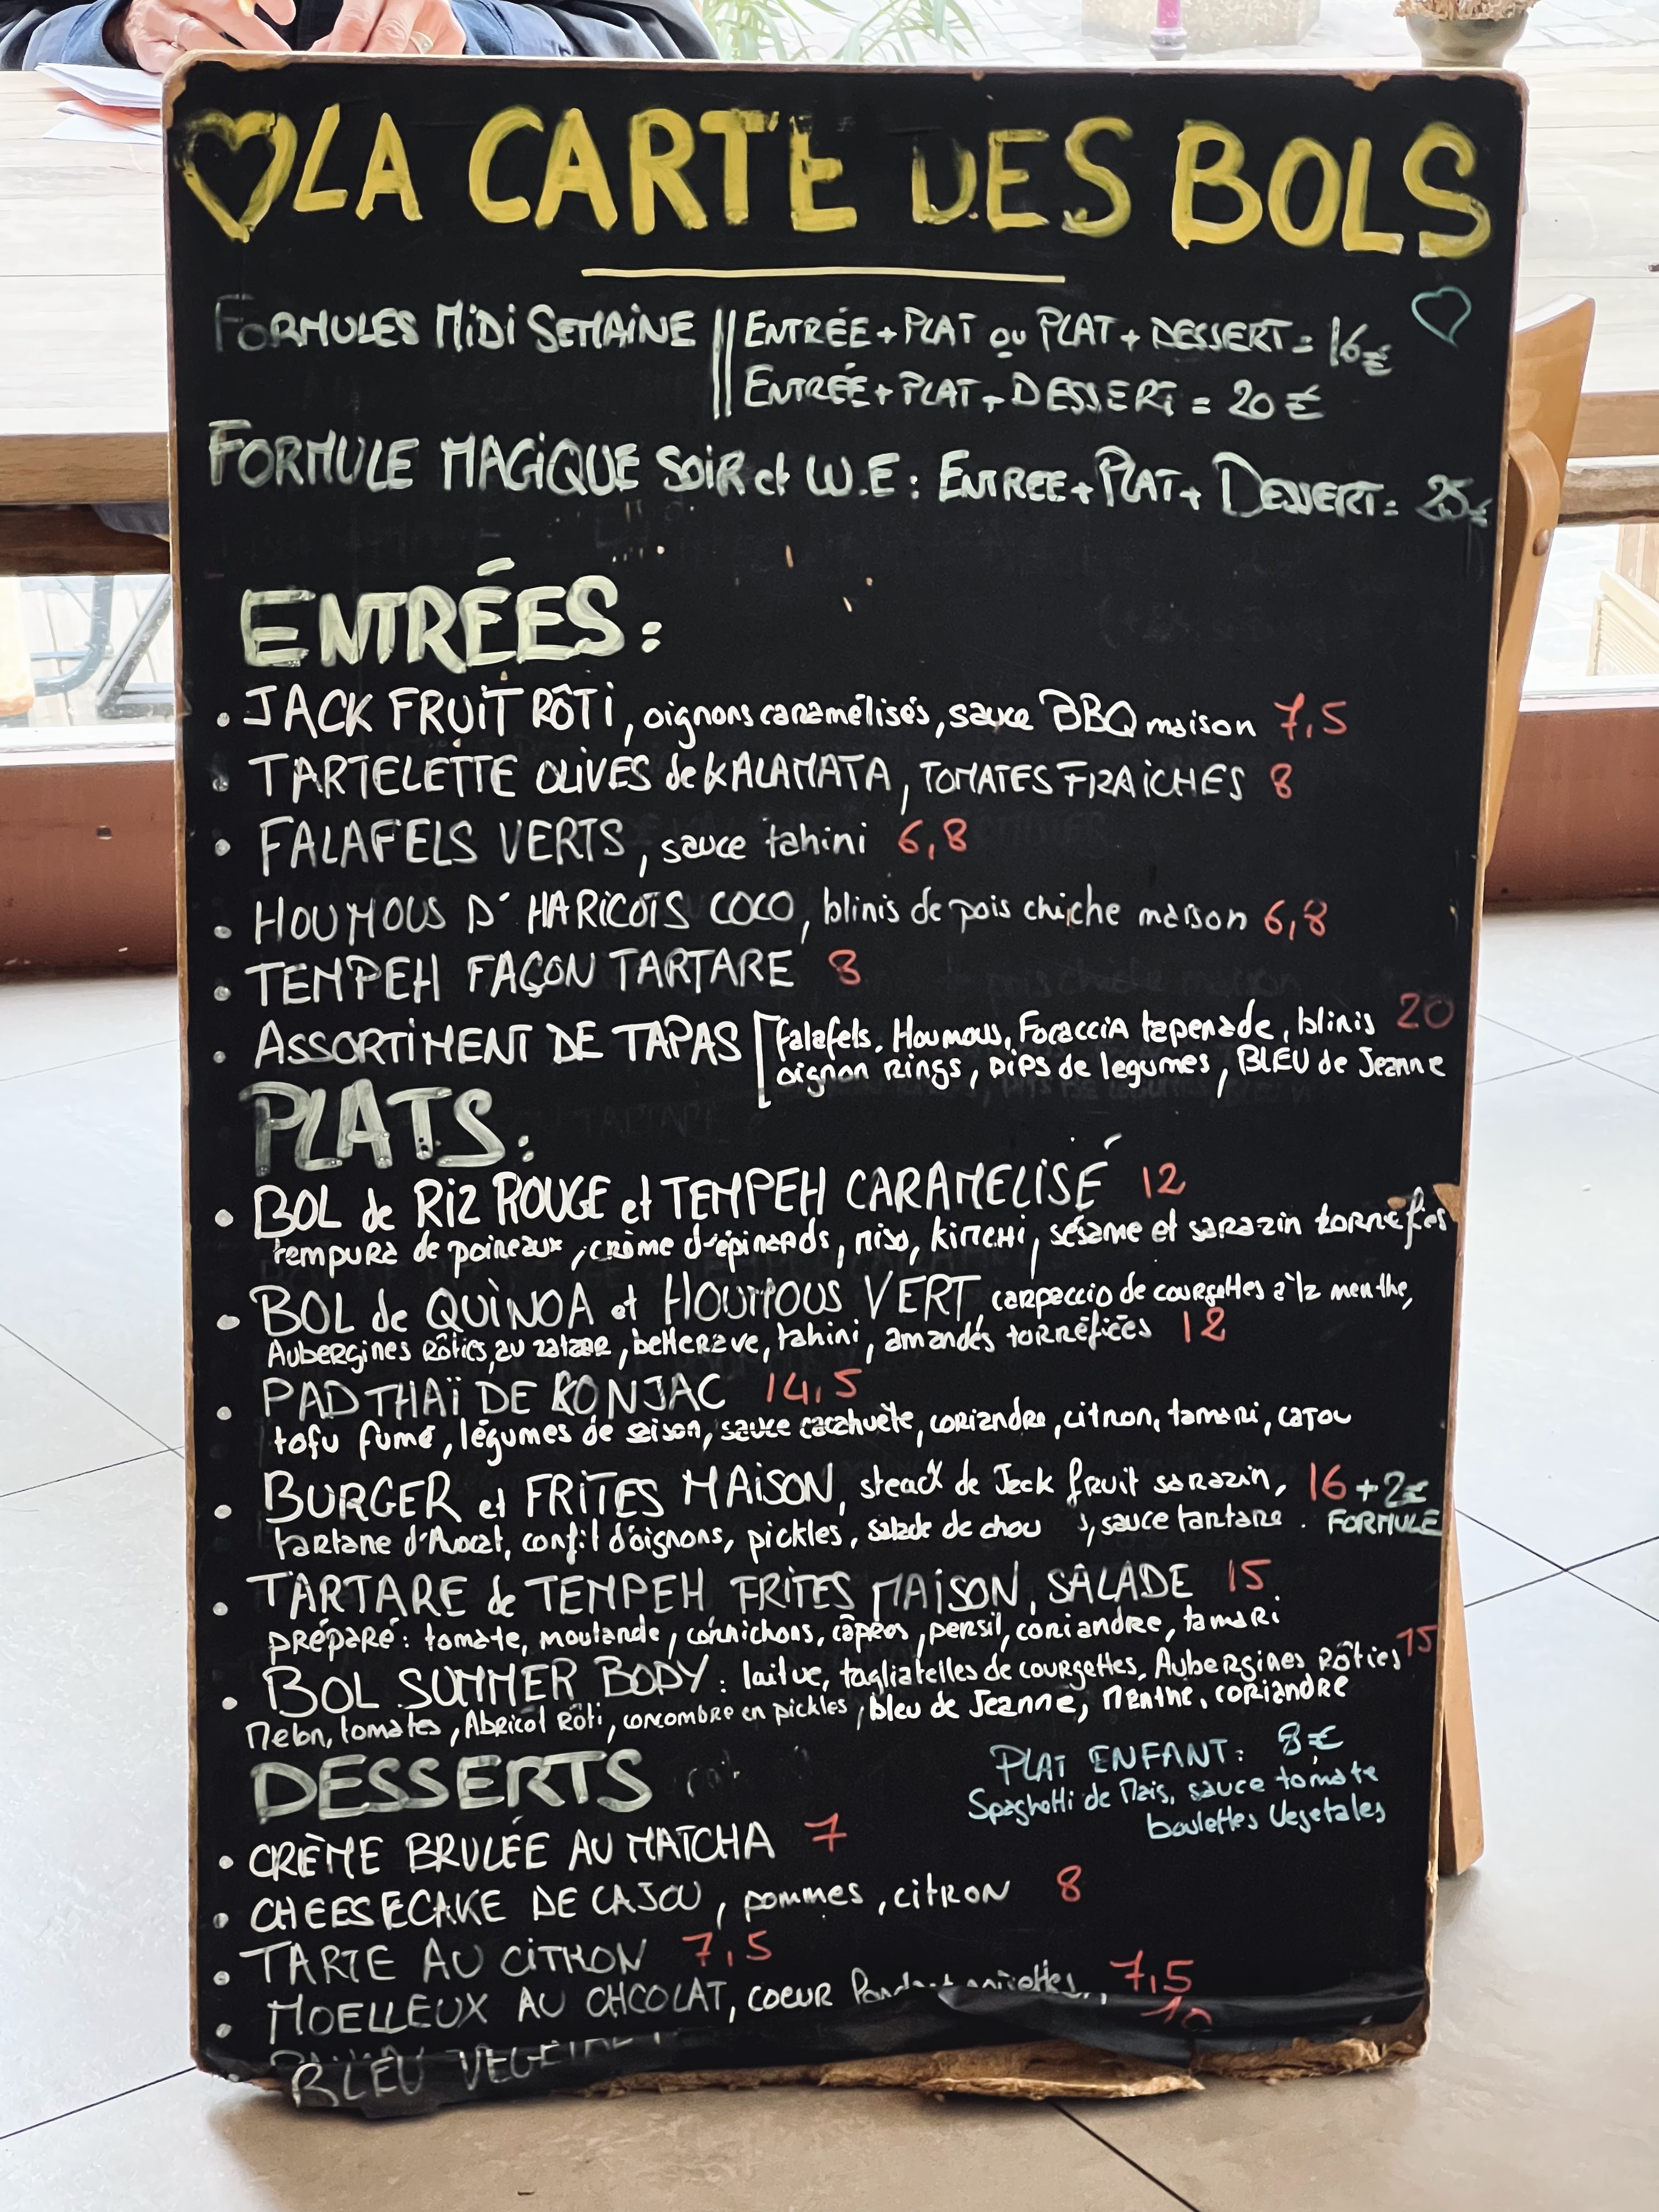 LA CARTE DES BOLS
FORMULES MiDi SEMAiNE || ENTRÉE + PLAT ou PLAT + DESSERT = 16€
ENTRÉE + PLAT + DESSERT = 20 €
FORMULE MAGiQUE SOiR et W.E : ENTREE + PLAT + DESSERT = 25€
ENTRÉES :
• JACK FRUIT RÔTi, oignons caramélisés, sauce BBQ maison 7,5
• TARTELETTE OLIVES de KALAMATA, TOMATES FRAiCHES 8
• FALAFELS VERTS, sauce tahini 6,8
• HOUMOUS D'HARiCOTS COCO, blinis de pois chiche maison 6,8
• TEMPEH FAÇON TARTARE 8
• ASSORTiMENT DE TAPAS [falafels, Houmous, Focaccia tapenade, blinis 20
oignon rings, DiPS de legumes, BLEU de Jeanne
PLATS :
• BOL de RiZ ROUGE et TEMPEH CARAMELISÉ 12
tempura de poireaux, crème d'épinards, miso, kimchi, sésame et sarazin torréfiés
• BOL de QUiNOA et HOUMOUS VERT, carpaccio de courgettes à la menthe,
Aubergines Rôties, au zataar, betterave, tahini, amandes torréfiées 12
• PAD THAÏ DE KONJAC 14,5
tofu fumé, légumes de saison, sauce cacahuète, coriandre, citron, tamari, cajou
• BURGER et FRiTES MAiSON, steack de Jack fruit sarazin, 16 +2€
tartare d'Avocat, confit d'oignons, pickles, salade de chou , sauce tartare. FORMULE
• TARTARE de TEMPEH FRiTES MAiSON, SALADE 15
préparé : tomate, moutarde, cornichons, câpres, persil, coriandre, tamari
• BOL SUMMER BODY : laitue, tagliatelles de courgettes, Aubergines Rôties 15
Melon, tomates, Abricot Rôti, concombre en pickles, bleu de Jeanne, Menthe, coriandre
DESSERTS
PLAT ENFANT : 8€
Spaghetti de Maïs, sauce tomate
boulettes Vegetales
• CRÈME BRULÉE AU MATCHA 7
• CHEESECAKE DE CAJOU, pommes, citRON 8
• TARTE AU CiTRON 7,5
• MOELLEUX AU CHCOLAT, COEUR 7,5
BLEU 10